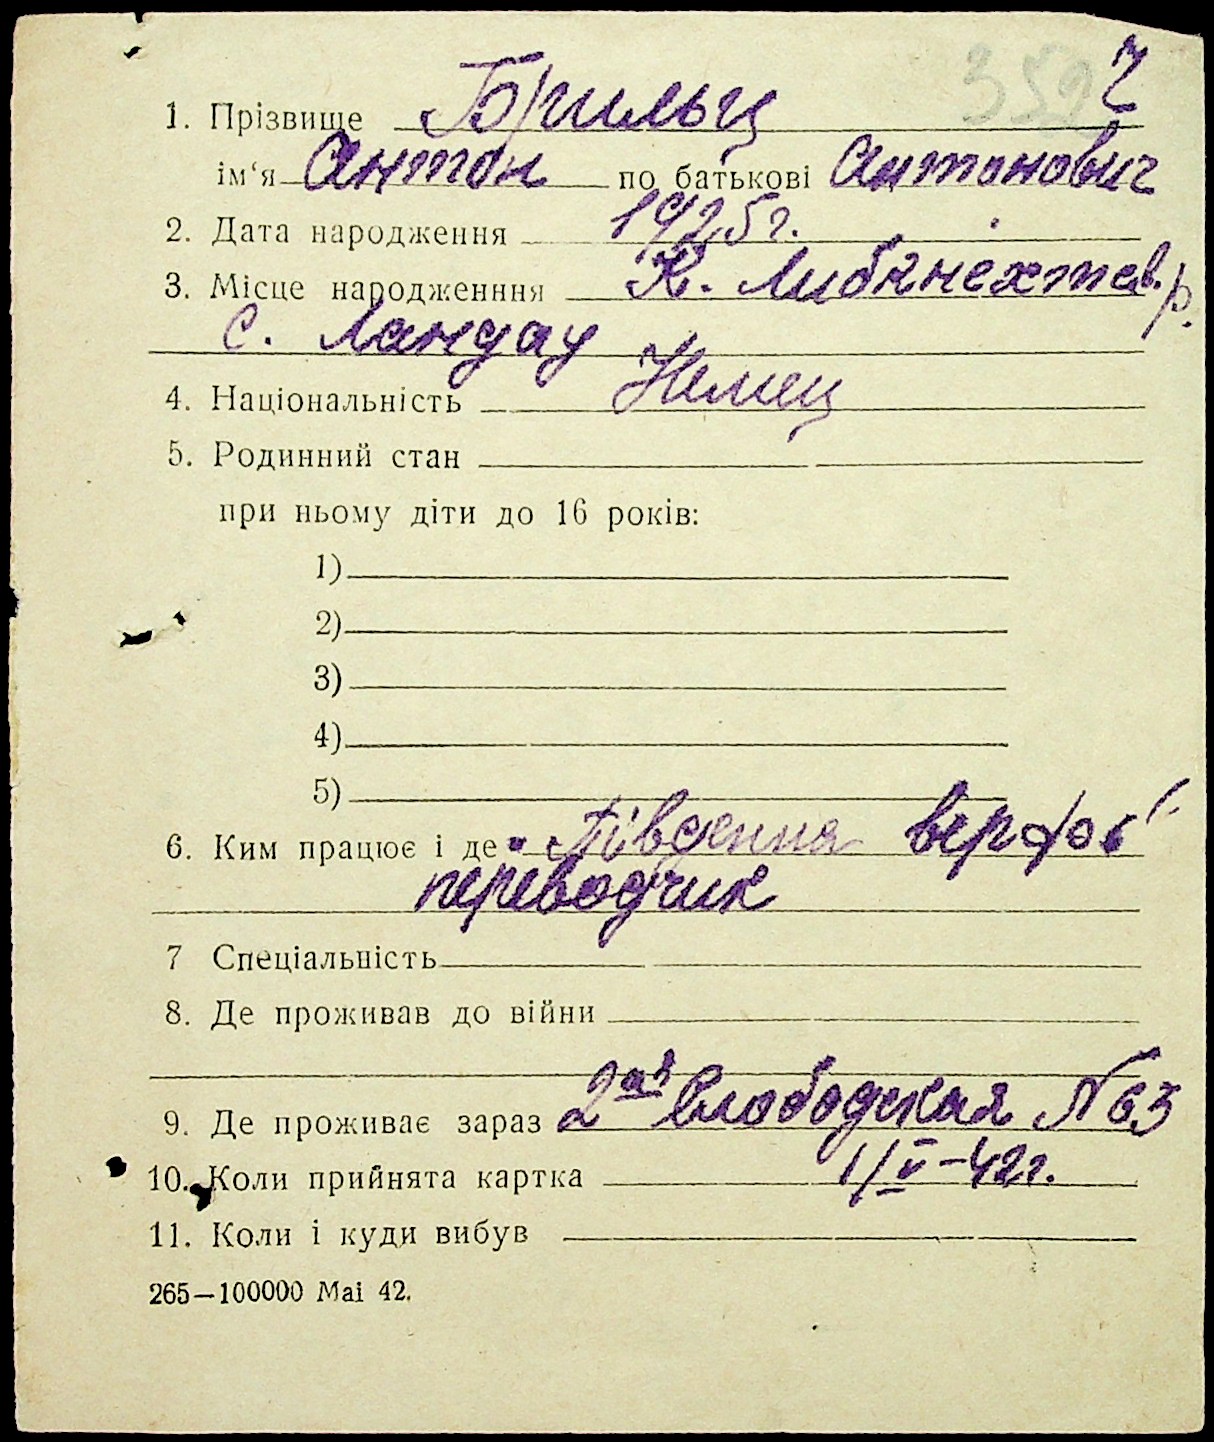 352 ч
1. Прізвище Брильц
ім'я Антон по батькові Антонович
2. Дата народження 1925г.
3. Місце народженння К. Либкнехтов. р.
с. Ландау
4. Національність Немец
5. Родинний стан
при ньому діти до 16 років:
1)
2)
3)
4)
5)
6. Ким працює і де „Південна верфь“
переводчик
7 Спеціальність
8. Де проживав до війни
9. Де проживає зараз 2ая Слободская № 63
10. Коли прийнята картка 1/V–42г.
11. Коли і куди вибув
265—100000 Mai 42.